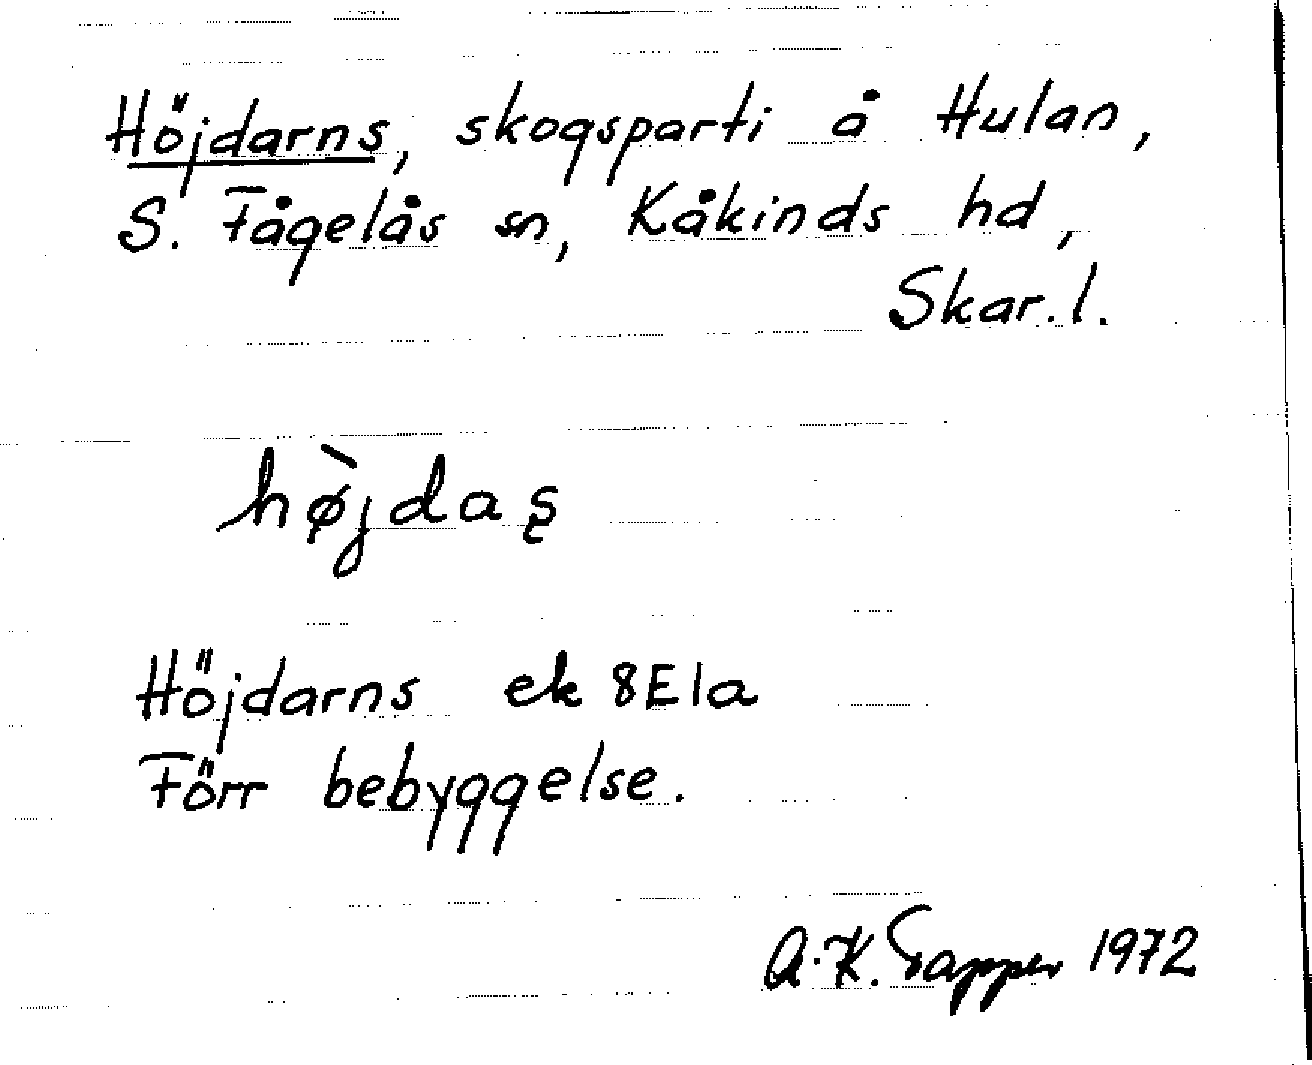 Höjdarns, skogsparti å Hulan,
S. Fågelås sn, Kåkinds hd,
Skar. l.
hø̀jdaʂ
Höjdarns ek 8E1a
Förr bebyggelse.
A.-K. Tapper 1972